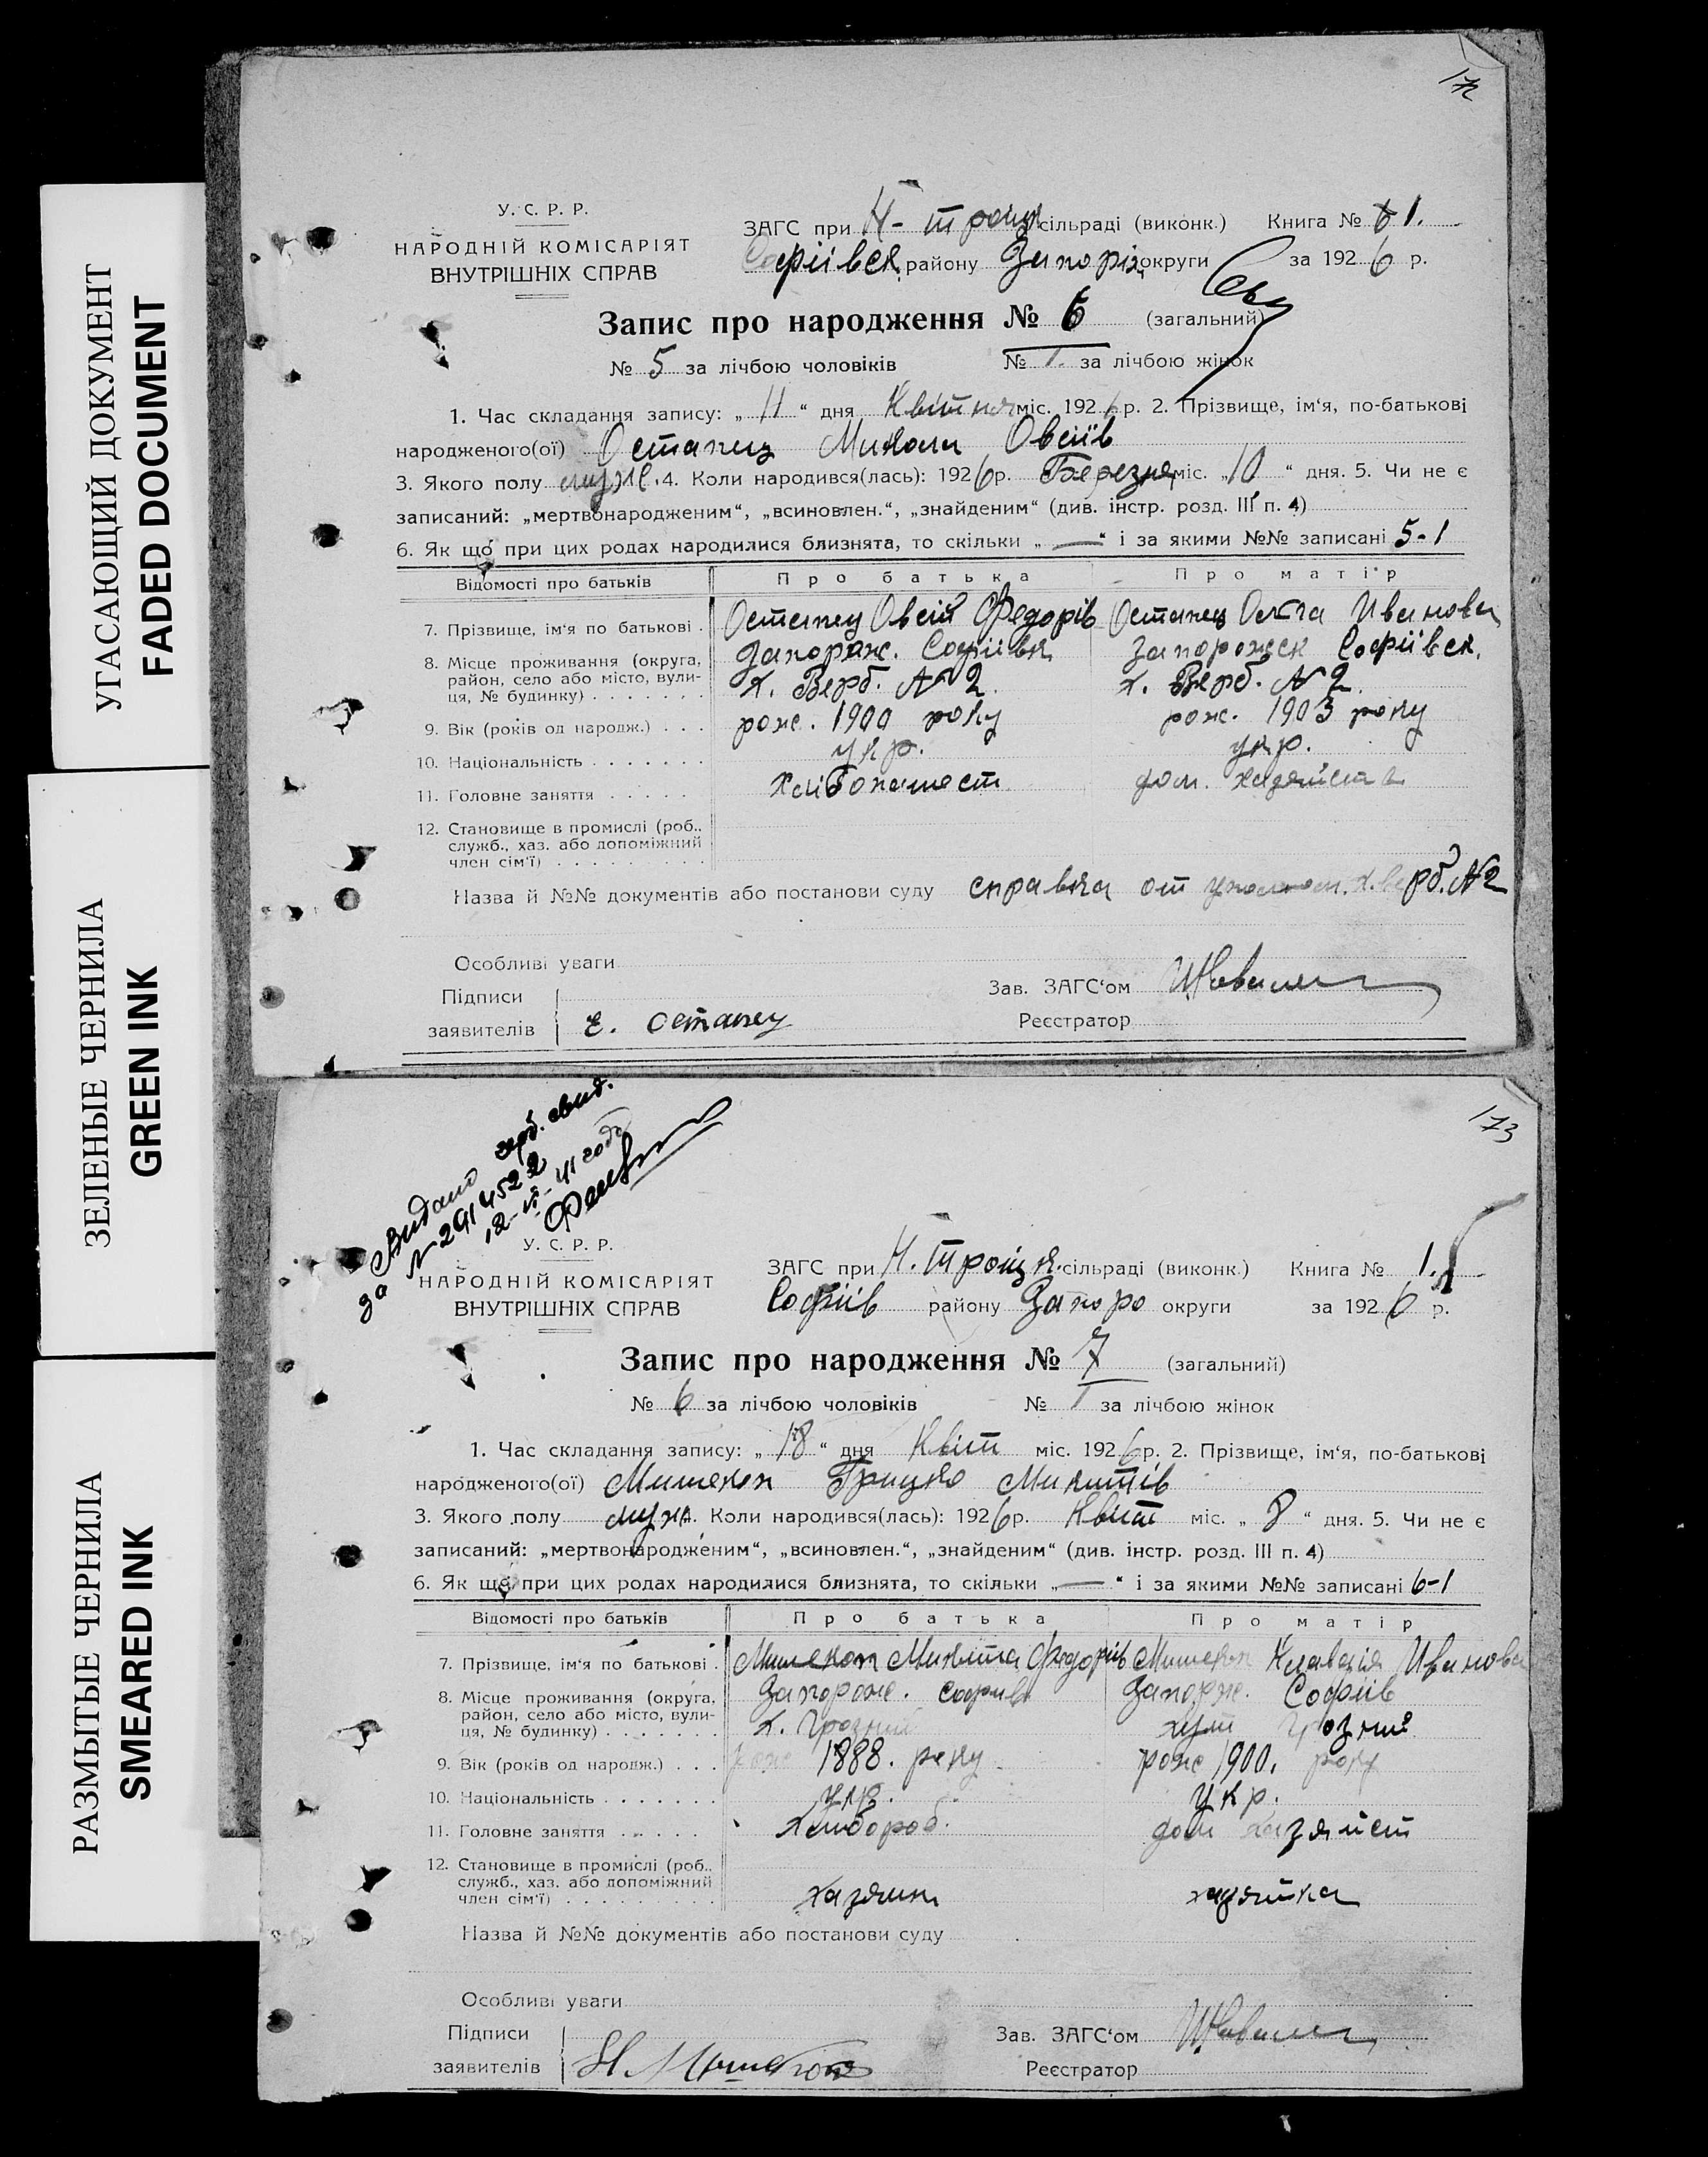 УГАСАЮЩИЙ ДОКУМЕНТ
FADED DOCUMENT
ЗЕЛЕНЫЕ ЧЕРНИЛА
GREEN INK
РАЗМЫТЫЕ ЧЕРНИЛА
SMEARED INK
172
У. С. Р. Р.
НАРОДНІЙ КОМІСАРІЯТ
ВНУТРІШНІХ СПРАВ
ЗАГС при Н-троїцк сільраді (виконк.) Книга № 1.
Софіївск. району Запоріз. округи за 1926 р.
Запис про народження № 6 (загальний)
№ 5 за лічбою чоловіків № 1. за лічбою жінок
1. Час складання запису: „11“ дня Квітня міс. 1926 р. 2. Прізвище, ім‘я, по-батькові
народженого(ої) Остапец Микола Овсіїв
3. Якого полу муж. 4. Коли народився(лась): 1926 р. Березня міс. „10“ дня. 5. Чи не є
записаний: „мертвонародженим“, „всиновлен.“, „знайденим“ (див. інстр. розд. III п. 4)
6. Як що при цих родах народилися близнята, то скільки „—“ і за якими №№ записані 5-1
Відомості про батьків Про батька Про матір
7. Прізвище, ім‘я по батькові . Остапец Овсій Федорів Остапец Ольга Иванова
8. Місце проживання (округа, район, село або місто, вулиця, № будинку) . . . . . . . Запорож. Софіївк. х. Верб. №2. Запорожск Софіївск. х. Верб. №2.
9. Вік (років од народж.) . . . рож. 1900 року рож. 1903 року
10. Національність . . . . . . . укр. укр.
11. Головне заняття . . . . . Хлібопашест дом. хазяйства
12. Становище в промислі (роб., служб., хаз. або допоміжний член сім‘ї) . . . . . . . . .
Назва й №№ документів або постанови суду справка от уполном. х. Верб. №2
Особливі уваги
Підписи
заявителів Е. Остапец
Зав. ЗАГС‘ом
Реєстратор
173
Видано герб. свид.
за № 291452
12-VI-41 года
У. С. Р. Р.
НАРОДНІЙ КОМІСАРІЯТ
ВНУТРІШНІХ СПРАВ
ЗАГС при Н. Троїцк. сільраді (виконк.) Книга № 1.
Софіїв району Запоро округи за 1926 р.
Запис про народження № 7 (загальний)
№ 6 за лічбою чоловіків № 1 за лічбою жінок
1. Час складання запису: „18“ дня Квіт міс. 1926 р. 2. Прізвище, ім‘я, по-батькові
народженого(ої) Мишекоп Грицко Микитів
3. Якого полу муж. 4. Коли народився(лась): 1926 р. Квіт міс. „8“ дня. 5. Чи не є
записаний: „мертвонародженим“, „всиновлен.“, „знайденим“ (див. інстр. розд. III п. 4)
6. Як що при цих родах народилися близнята, то скільки „—“ і за якими №№ записані 6-1
Відомості про батьків Про батька Про матір
7. Прізвище, ім‘я по батькові . Мишекоп Микита Федорів Мишекоп Клавдія Иванова
8. Місце проживання (округа, район, село або місто, вулиця, № будинку) . . . . . . . Запорож. Софиів х. Грозний Запорж. Софіїв хут Грозний
9. Вік (років од народж.) . . . рож 1888. року рож 1900. року
10. Національність . . . . . . . укр. укр.
11. Головне заняття . . . . . хлибороб. дом хазяйст
12. Становище в промислі (роб., служб., хаз. або допоміжний член сім‘ї) . . . . . . . . . хазяин хазяйка
Назва й №№ документів або постанови суду
Особливі уваги
Підписи
заявителів
Зав. ЗАГС‘ом
Реєстратор